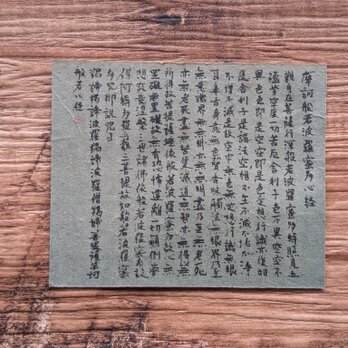 摩訶般若波羅蜜多心経
観自在菩薩行深般若波羅蜜多時照見五
蘊皆空度一切苦厄舎利子色不異空空不
異色色即是空空即是色受想行識亦復如
是舎利子是諸法空相不生不滅不垢不浄
不増不減是故空中無色無受想行識無眼
耳鼻舌身意無色声香味触法無眼界乃至
無意識界無無明亦無無明尽乃至無老死
亦無老死尽無苦集滅道無智亦無得以無
所得故菩提薩埵依般若波羅蜜多故心無
罣礙無罣礙故無有恐怖遠離一切顛倒夢
想究竟涅槃三世諸仏依般若波羅蜜多故
得阿耨多羅三藐三菩提故知般若波羅蜜
多呪即説呪曰
羯諦羯諦波羅羯諦波羅僧羯諦菩提薩婆訶
般若心経